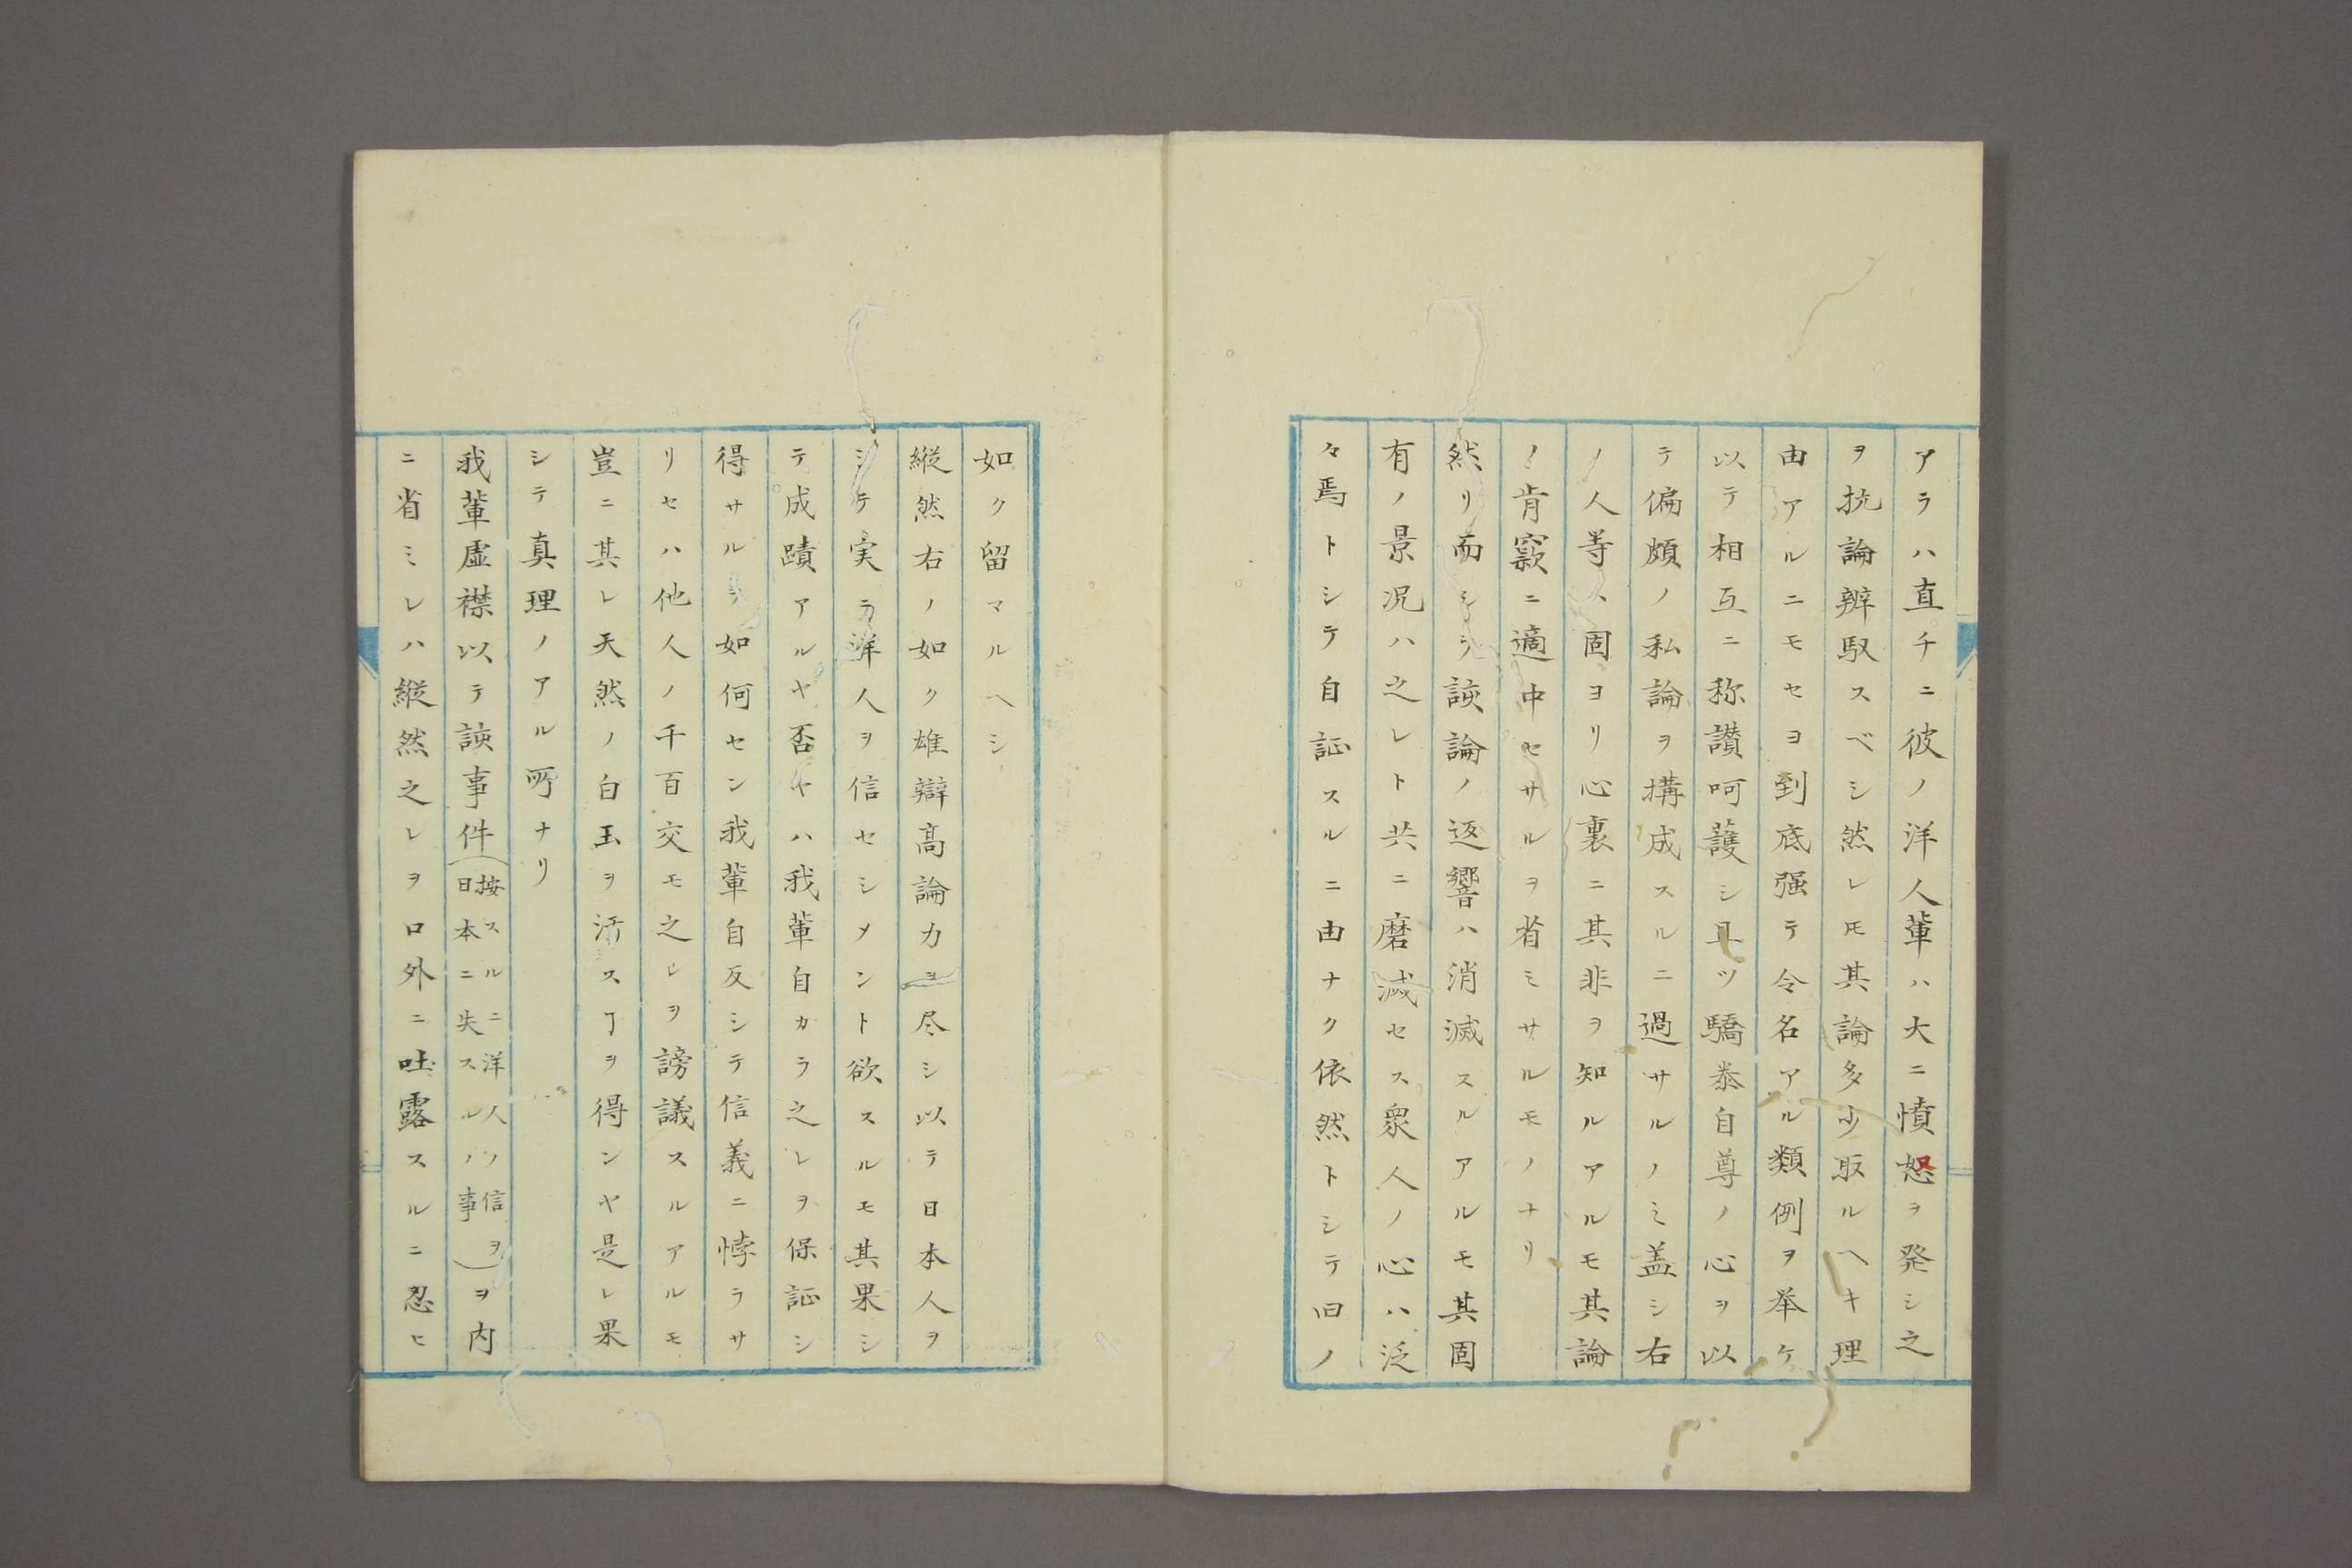 アラハ直チニ彼ノ洋人輩ハ大ニ憤怒ヲ発シ之
ヲ抗論辨駁スベシ然レ𪜈其論多少取ルヘキ理
由アルニモセヨ到底强テ令名アル類例ヲ举ケ
以テ相互ニ称讃呵護シ且ツ驕泰自尊ノ心ヲ以
テ偏頗ノ私論ヲ搆成スルニ過サルノミ盖シ右
ノ人等ハ固ヨリ心裏ニ其非ヲ知ルアルモ其論
ノ肯窾ニ適中セサルヲ省ミサルモノナリ
然リ而シテ該論ノ返響ハ消滅スルアルモ其固
有ノ景况ハ之レト共ニ磨滅セス衆人ノ心ハ泛
々焉トシテ自証スルニ由ナク依然トシテ旧ノ
如ク留マルヘシ
縦然右ノ如ク雄辯高論力ヲ尽シ以テ日本人ヲ
シテ実ニ洋人ヲ信セシメント欲スルモ其果シ
テ成蹟アルヤ否ヤハ我輩自カラ之レヲ保証シ
得サルヲ如何セン我輩自反シテ信義ニ悖ラサ
リセハ他人ノ千百交モ之レヲ謗議スルアルモ
豈ニ其レ天然ノ白玉ヲ汚スヿヲ得ンヤ是レ果
シテ真理ノアル所ナリ
我輩虚襟以テ該事件(按スルニ洋人ノ信ヲ日本ニ失スルノ事)ヲ内
ニ省ミレハ縦然之レヲ口外ニ吐露スルニ忍ヒ